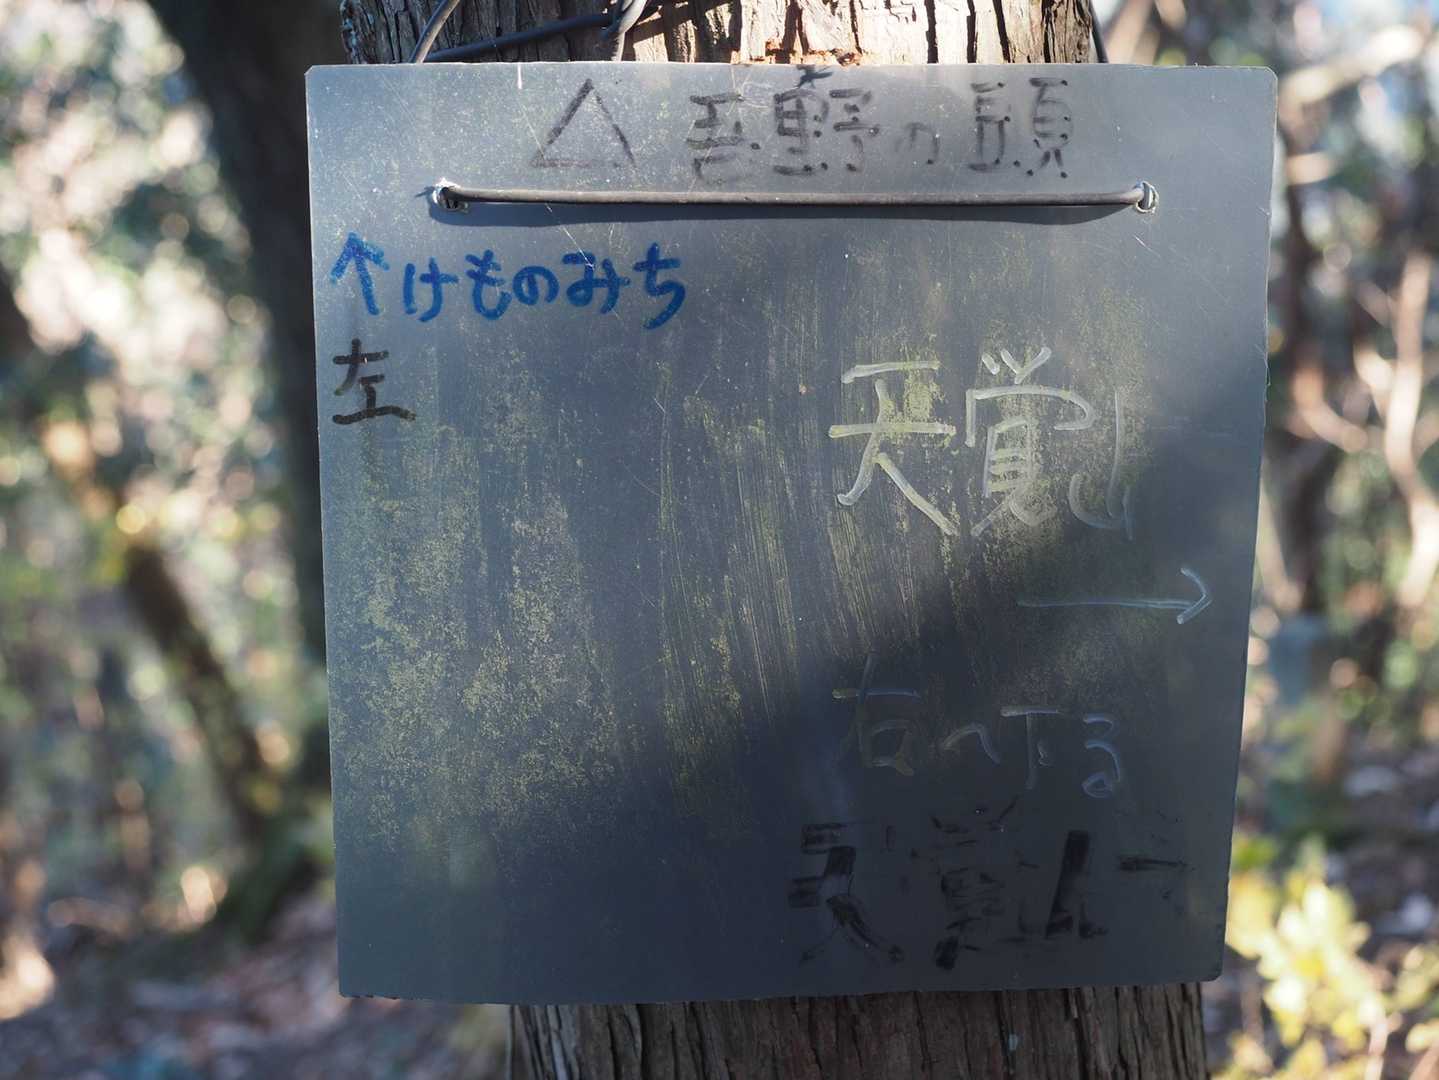 △吾野の頭
↑けものみち
左
天覚山
→
右へ下る
天覚山